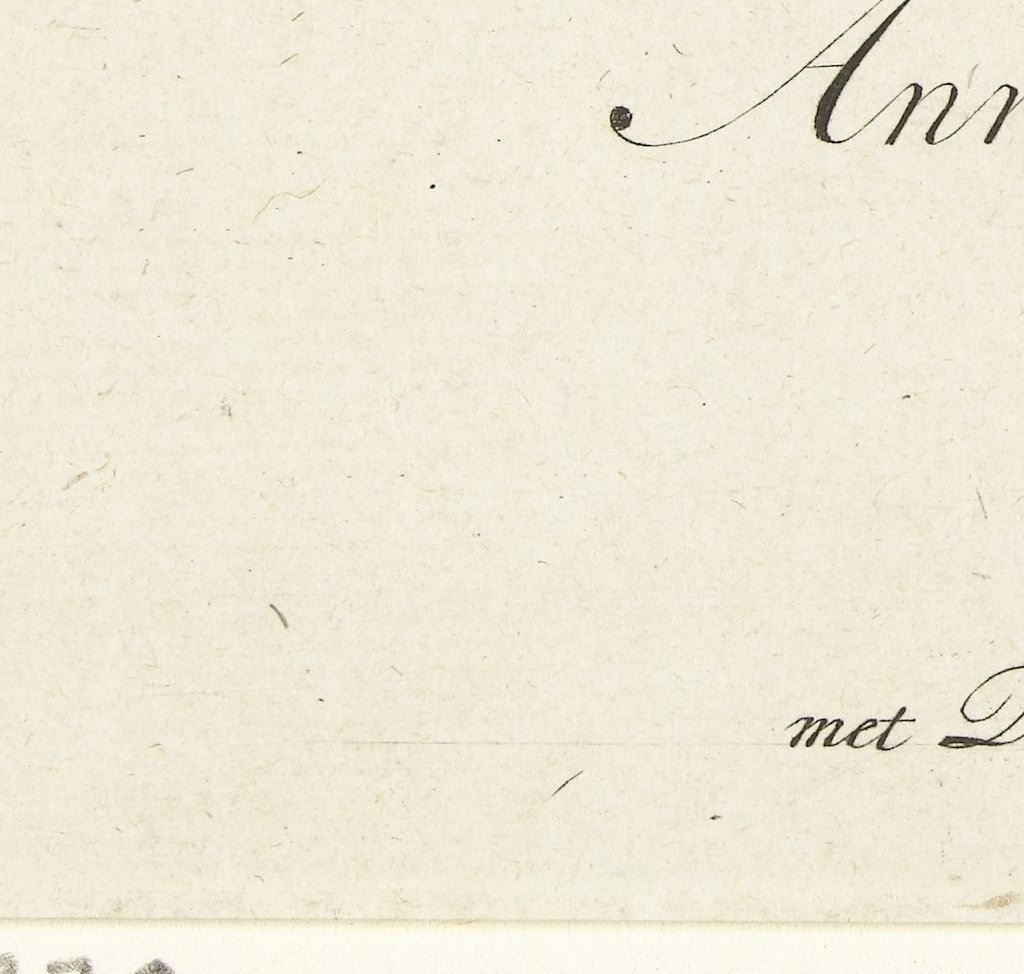 Ann
met D